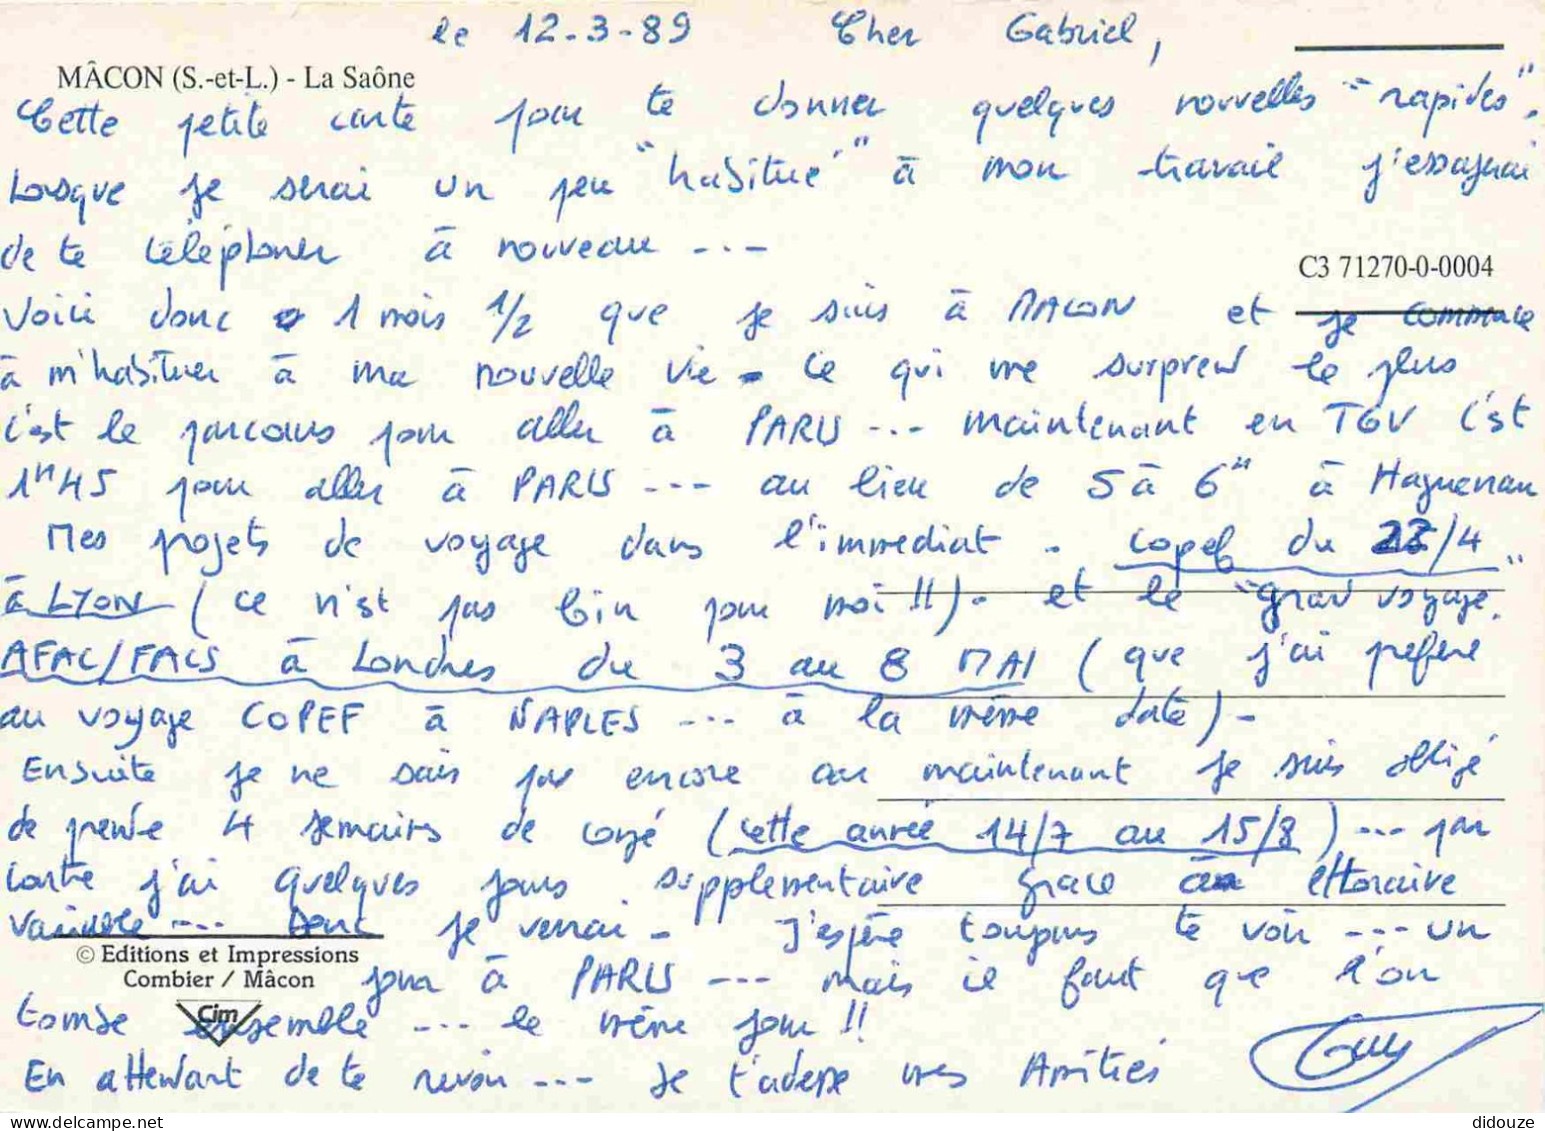 le 12-3-89 Cher Gabriel,
MÂCON (S.-et-L.) - La Saône
Cette petite carte pour te donner quelques nouvelles "rapides".
Lorsque je serai un peu "habitué" à mon travail j'essayerai
de te téléphoner à nouveau ---
C3 71270-0-0004
Voici donc 1 mois 1/2 que je suis à MACON et je commence
à m'habituer à ma nouvelle vie - Ce qui me surprend le plus
c'est le parcours pour aller à PARIS --- maintenant en TGV c'est
1h45 pour aller à PARIS --- au lieu de 5 à 6h à Haguenau
Mes projets de voyage dans l'immediat - copef du 23/4
à LYON (ce n'est pas loin pour moi !!) - et le "grand voyage"
AFAC/FACS à Londres du 3 au 8 MAI (que j'ai préféré
au voyage COPEF à NAPLES --- à la même date) -
Ensuite je ne sais pas encore car maintenant je suis obligé
de prendre 4 semaines de congé (cette année 14/7 au 15/8) --- par
contre j'ai quelques jours supplémentaire grace à l'horaire
variable --- Donc je verrai - J'espère toujours te voir --- un
© Editions et Impressions
Combier / Mâcon
jour à PARIS --- mais il faut que l'on
Cim
tombe ensemble --- le même jour !!
En attendant de te revoir --- Je t'adresse mes Amitiés
Guy
didouze